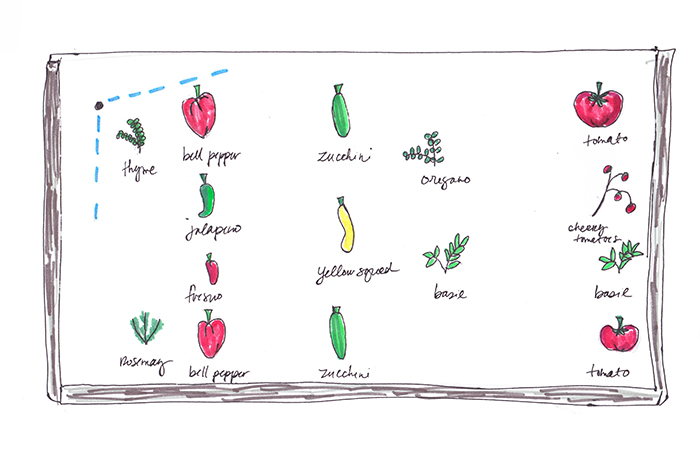 thyme
bell pepper
zucchini
oregano
tomato
jalapeno
cherry
tomatoes
yellow squash
basil
basil
fresno
rosemary
bell pepper
zucchini
tomato